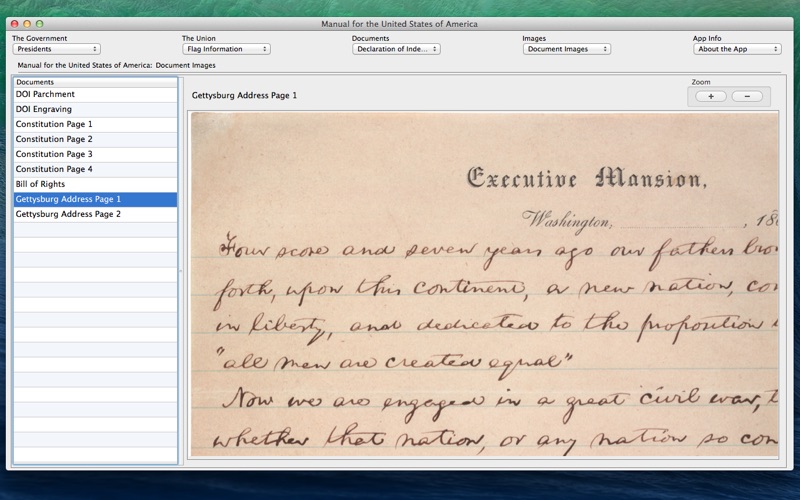 Manual for the United States of America
The Government
Presidents
The Union
Flag Information
Documents
Declaration of Inde...
Images
Document Images
App Info
About the App
Manual for the United States of America: Document Images
Documents
DOI Parchment
DOI Engraving
Constitution Page 1
Constitution Page 2
Constitution Page 3
Constitution Page 4
Bill of Rights
Gettysburg Address Page 1
Gettysburg Address Page 2
Gettysburg Address Page 1
Zoom
+
−
Executive Mansion,
Washington, , 18
Four score and seven years ago our fathers bro
forth, upon this continent, a new nation, con
in liberty, and dedicated to the proposition
"all men are created equal"
Now we are engaged in a great civil war, t
whether that nation, or any nation so con